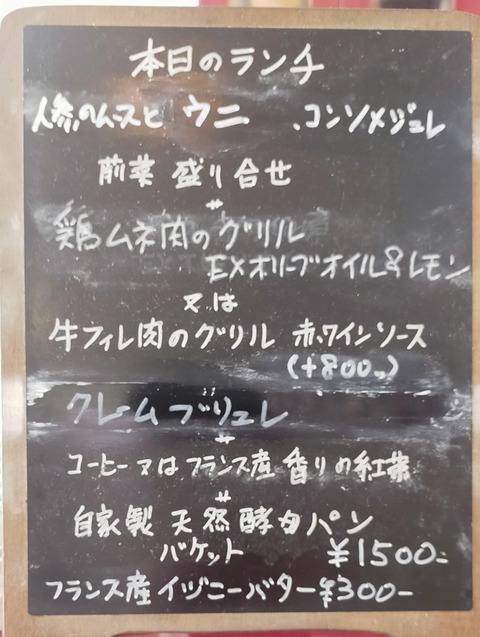 本日のランチ
人参のムースと ウニ 、コンソメジュレ
前菜 盛り合せ
鶏ムネ肉のグリル
EXオリーブオイル&レモン
又は
牛フィレ肉のグリル 赤ワインソース
(+800-)
クレームブリュレ
コーヒー又はフランス産 香りの紅葉
自家製 天然酵母パン
バケット ¥1500-
フランス産イヅニーバター¥300-